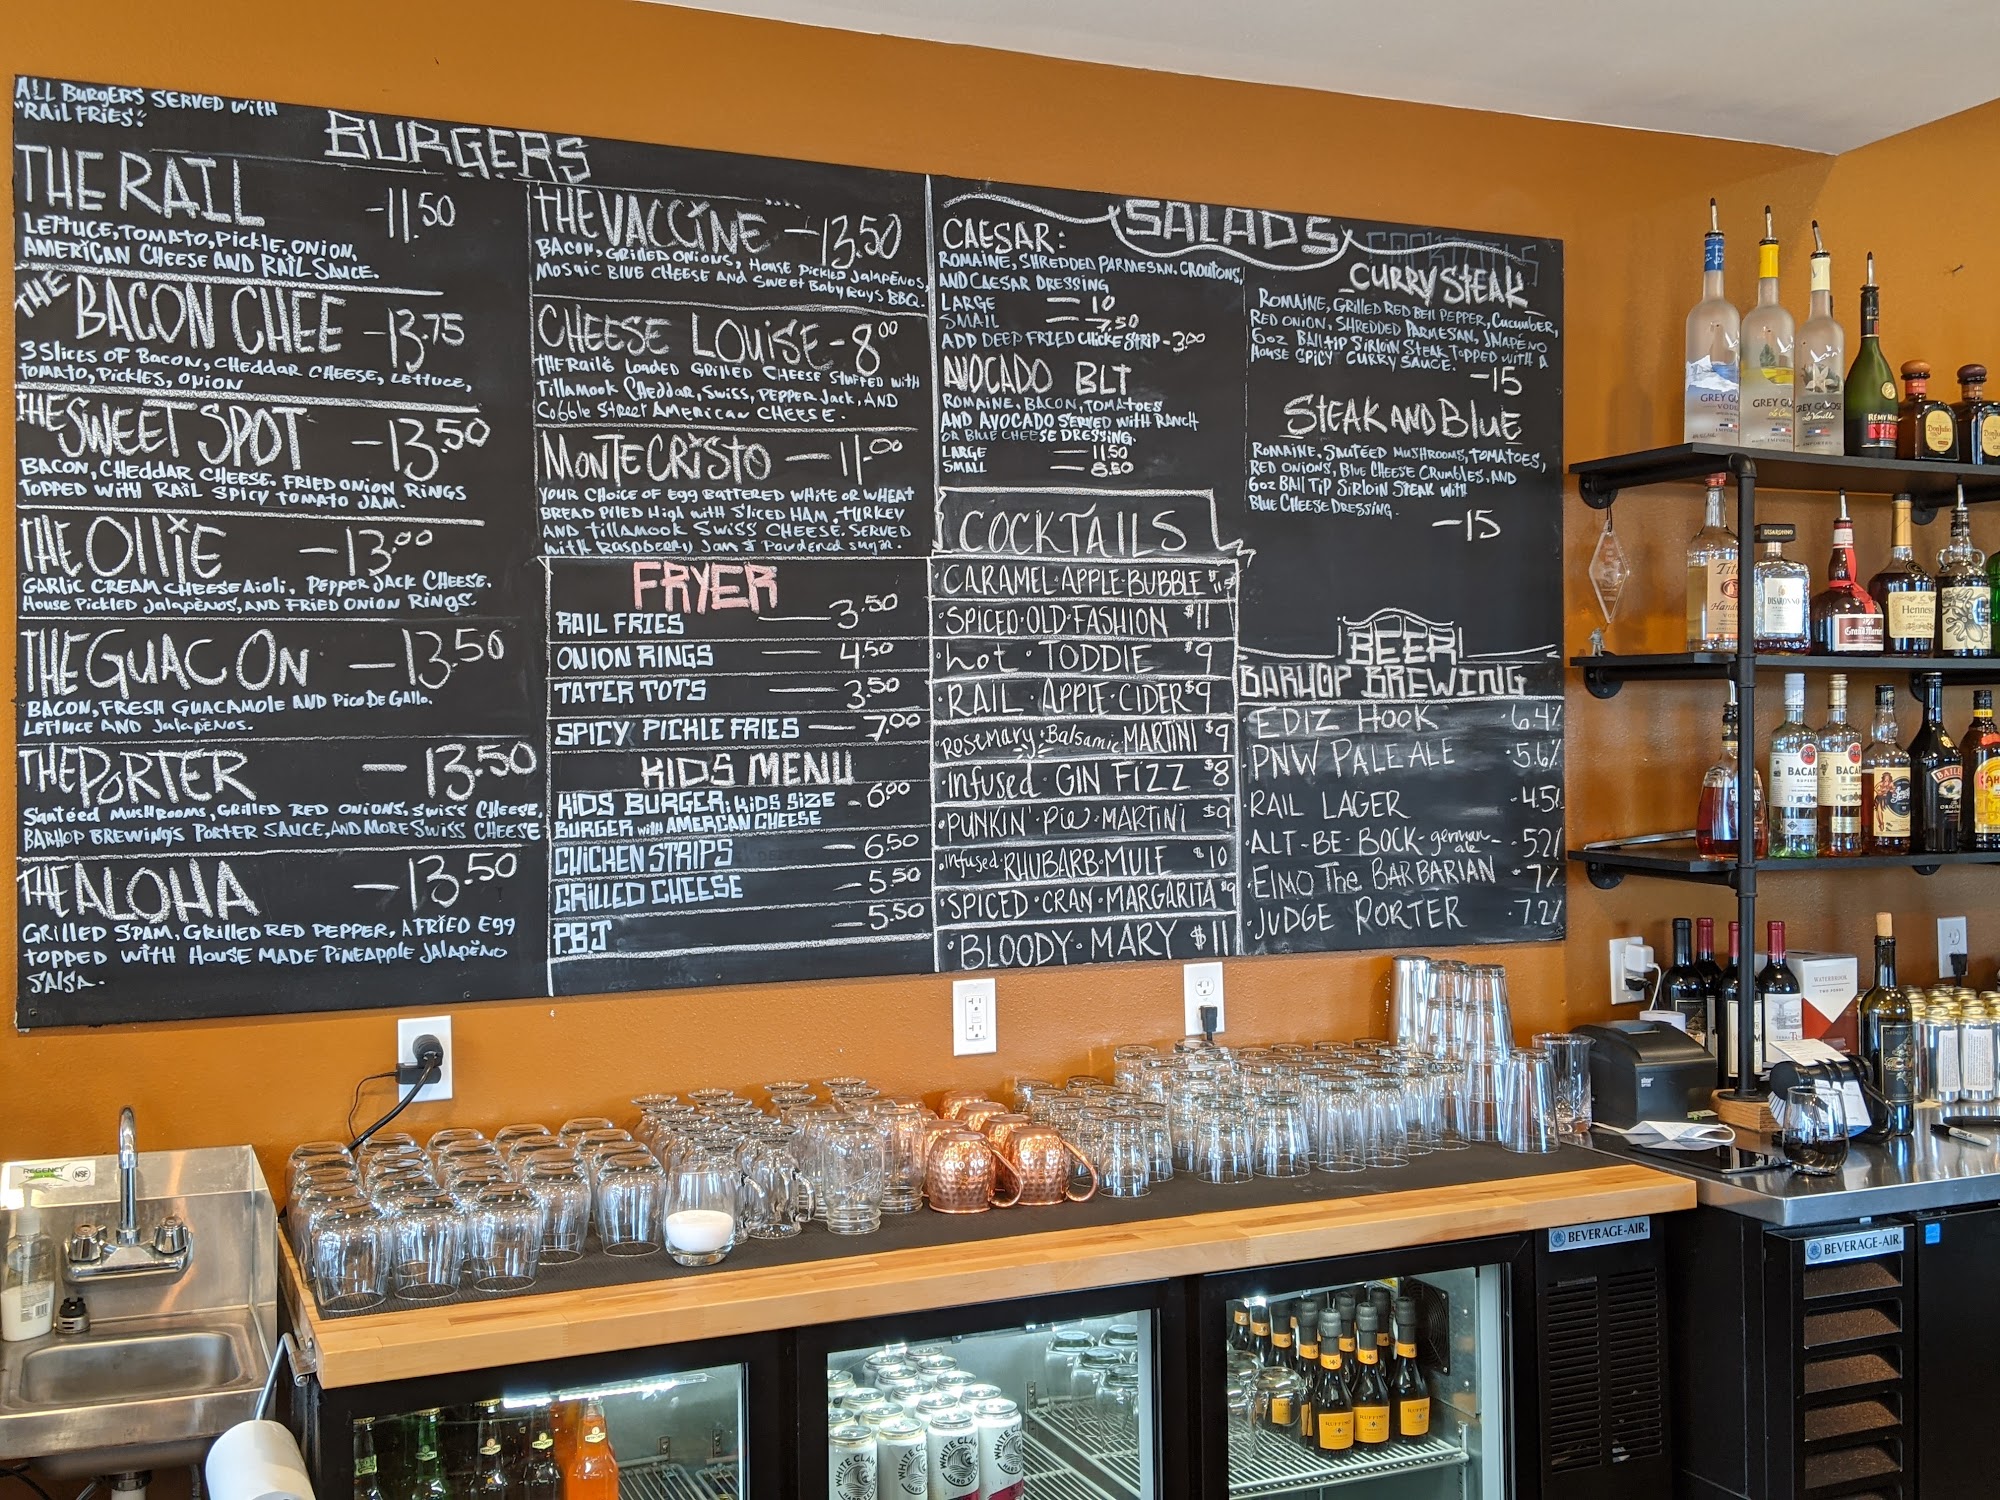 ALL BURGERS SERVED WITH
"RAIL FRIES":
BURGERS
THE RAIL -11.50
LETTUCE, TOMATO, PICKLE, ONION,
AMERICAN CHEESE AND RAIL SAUCE.
THE BACON CHEE -13.75
3 SLICES OF BACON, CHEDDAR CHEESE, LETTUCE,
TOMATO, PICKLES, ONION
THE SWEET SPOT -13.50
BACON, CHEDDAR CHEESE. FRIED ONION RINGS
TOPPED WITH RAIL SPICY TOMATO JAM.
THE OLLIE -13.00
GARLIC CREAM CHEESE AIOLI, PEPPER JACK CHEESE.
HOUSE PICKLED JALAPEÑOS, AND FRIED ONION RINGS.
THE GUAC ON -13.50
BACON, FRESH GUACAMOLE AND PICO DE GALLO.
LETTUCE AND JALAPEÑOS.
THE PORTER -13.50
SAUTÉED MUSHROOMS, GRILLED RED ONIONS, SWISS CHEESE,
BARHOP BREWING'S PORTER SAUCE, AND MORE SWISS CHEESE
THE ALOHA -13.50
GRILLED SPAM, GRILLED RED PEPPER, A FRIED EGG
TOPPED WITH HOUSE MADE PINEAPPLE JALAPEÑO
SALSA.
THE VACCINE -13.50
BACON, GRILLED ONIONS, HOUSE PICKLED JALAPEÑOS,
MOSAIC BLUE CHEESE AND SWEET BABY RAYS BBQ.
CHEESE LOUISE -8.00
THE RAIL'S LOADED GRILLED CHEESE STUFFED WITH
TILLAMOOK CHEDDAR, SWISS, PEPPER JACK, AND
COBBLE STREET AMERICAN CHEESE.
MONTE CRISTO -11.00
YOUR CHOICE OF EGG BATTERED WHITE OR WHEAT
BREAD PILED HIGH WITH SLICED HAM, TURKEY
AND TILLAMOOK SWISS CHEESE. SERVED
WITH RASPBERRY JAM & POWDERED SUGAR.
FRYER
RAIL FRIES 3.50
ONION RINGS 4.50
TATER TOTS 3.50
SPICY PICKLE FRIES 7.00
KIDS MENU
KIDS BURGER: KIDS SIZE -6.00
BURGER WITH AMERICAN CHEESE
CHICKEN STRIPS -6.50
GRILLED CHEESE -5.50
PBJ -5.50
SALADS
CAESAR:
ROMAINE, SHREDDED PARMESAN. CROUTONS,
AND CAESAR DRESSING
LARGE — 10
SMALL — 7.50
ADD DEEP FRIED CHICKE STRIP -3.00
AVOCADO BLT
ROMAINE, BACON, TOMATOES
AND AVOCADO SERVED WITH RANCH
OR BLUE CHEESE DRESSING.
LARGE — 11.50
SMALL — 8.50
COCKTAILS
CURRY STEAK
ROMAINE, GRILLED RED BELL PEPPER, CUCUMBER,
RED ONION, SHREDDED PARMESAN, JALAPEÑO
6oz BALL TIP SIRLOIN STEAK TOPPED WITH A
HOUSE SPICY CURRY SAUCE. -15
STEAK AND BLUE
ROMAINE, SAUTÉED MUSHROOMS, TOMATOES,
RED ONIONS, BLUE CHEESE CRUMBLES, AND
6oz BALL TIP SIRLOIN STEAK WITH
BLUE CHEESE DRESSING.
-15
COCKTAILS
·CARAMEL·APPLE·BUBBLE
·SPICED·OLD·FASHION $11
·HOT·TODDIE $9
·RAIL·APPLE·CIDER $9
·ROSEMARY·BALSAMIC MARTINI $9
·INFUSED·GIN FIZZ $8
·PUNKIN' PIE·MARTINI $9
·INFUSED·RHUBARB·MULE $10
·SPICED·CRAN·MARGARITA $9
·BLOODY·MARY $11
BEER
BARHOP BREWING
·EDIZ HOOK ·6.4%
·PNW PALE ALE ·5.6%
·RAIL LAGER ·4.5%
·ALT-BE-BOCK-german-ale ·5.2%
·ELMO THE BARBARIAN ·7%
·JUDGE PORTER ·7.2%
GREY GOOSE
VODKA
GREY GOOSE
GREY GOOSE
La Vanille
RÉMY MARTIN
Don Julio
Don Julio
Tito's
Handmade
DISARONNO
DISARONNO
Grand Marnier
Hennessy
BACARDI
BACARDI
BAILEYS
WATERBROOK
star
REGENCY
NSF
BEVERAGE-AIR
BEVERAGE-AIR
WHITE CLAW
WHITE CLAW
WHITE CLAW
WHITE CLAW
HARD SELTZER
RUFFINO
RUFFINO
RUFFINO